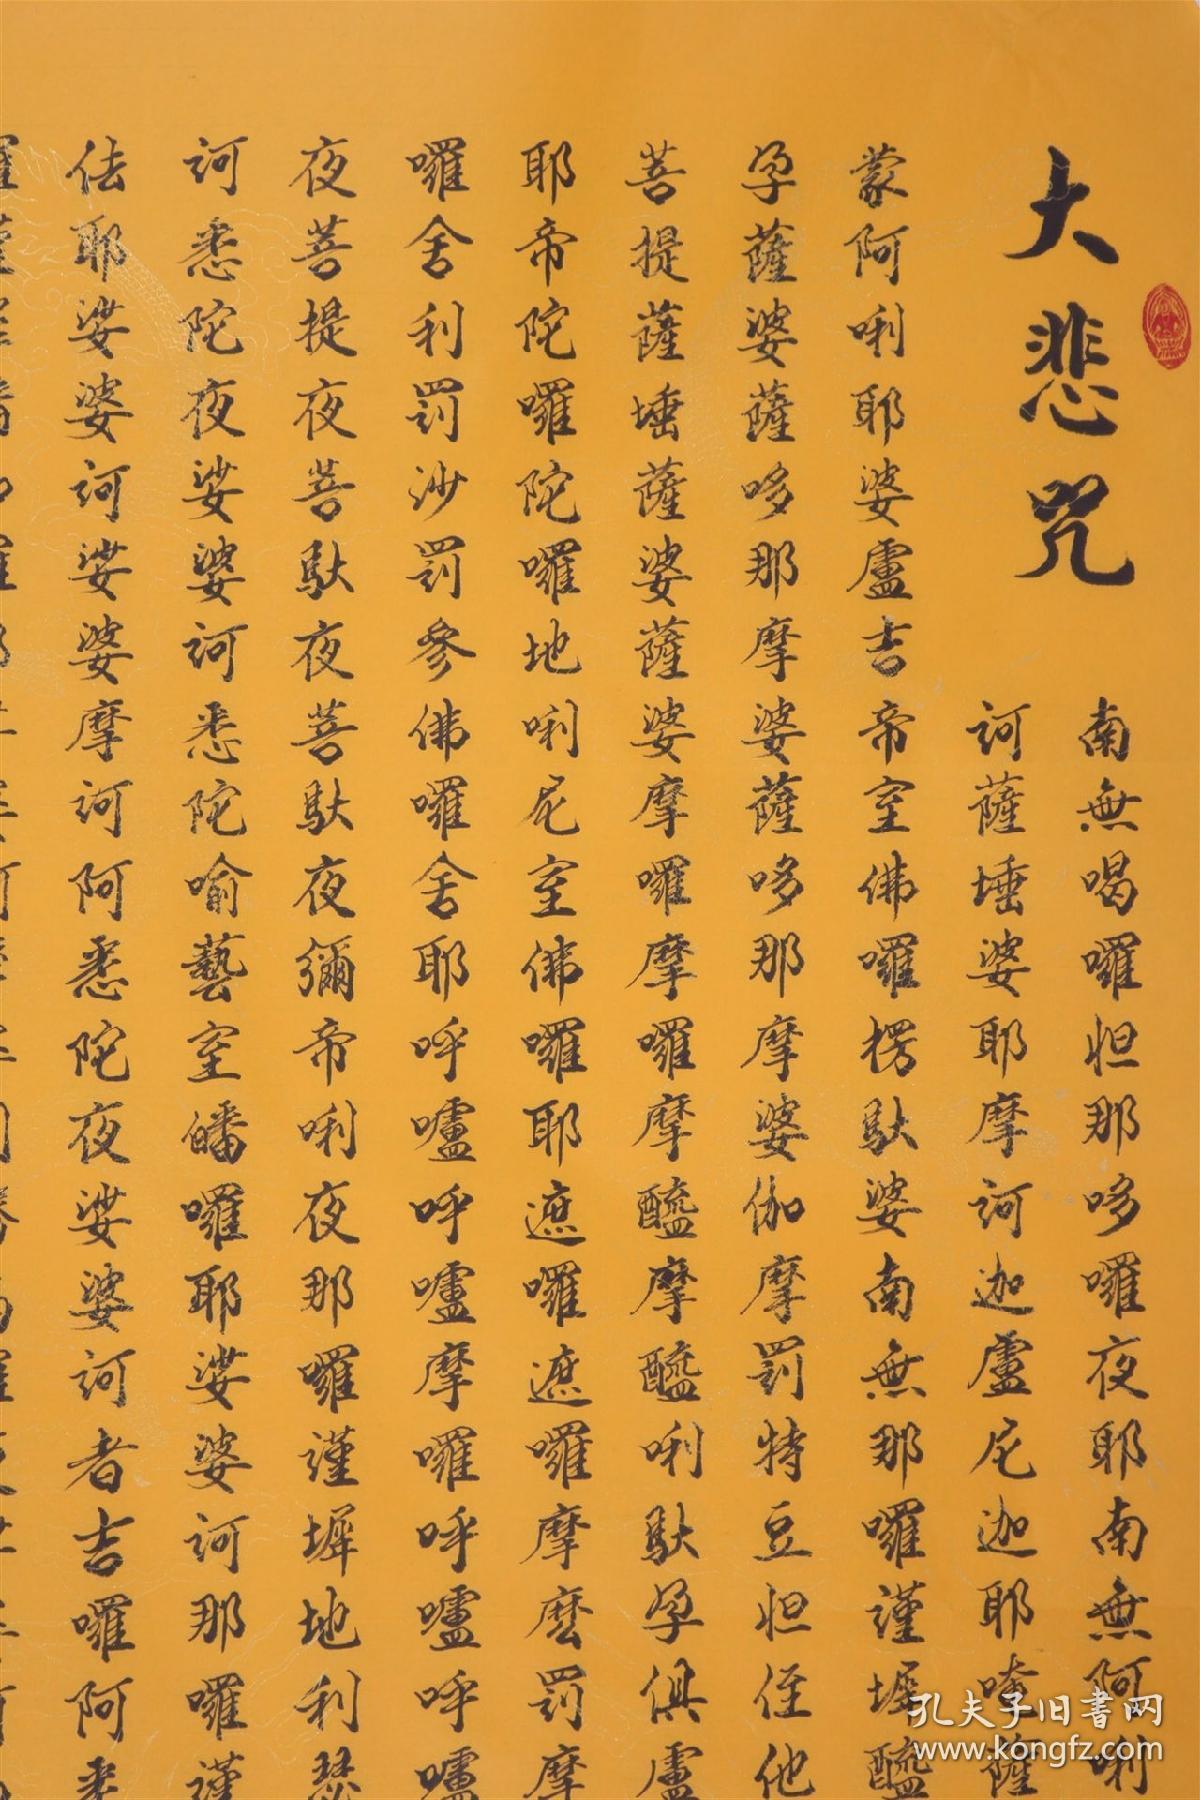 大悲咒
南無喝囉怛那哆囉夜耶南無阿唎
訶薩埵婆耶摩訶迦盧尼迦耶唵薩
蒙阿唎耶婆盧吉帝室佛囉楞馱婆南無那囉謹墀醯
孕薩婆薩哆那摩婆薩哆那摩婆伽摩罰特豆怛侄他
菩提薩埵薩婆薩婆摩囉摩囉摩醯摩醯唎馱孕俱盧
耶帝陀囉陀囉地唎尼室佛囉耶遮囉遮囉摩麼罰摩
囉舍利罰沙罰參佛囉舍耶呼嚧呼嚧摩囉呼嚧呼嚧
夜菩提夜菩馱夜菩馱夜彌帝唎夜那囉謹墀地利瑟
訶悉陀夜娑婆訶悉陀喻藝室皤囉耶娑婆訶那囉謹
佉耶娑婆訶娑婆摩訶阿悉陀夜娑婆訶者吉囉阿悉
孔夫子旧书网
www.kongfz.com